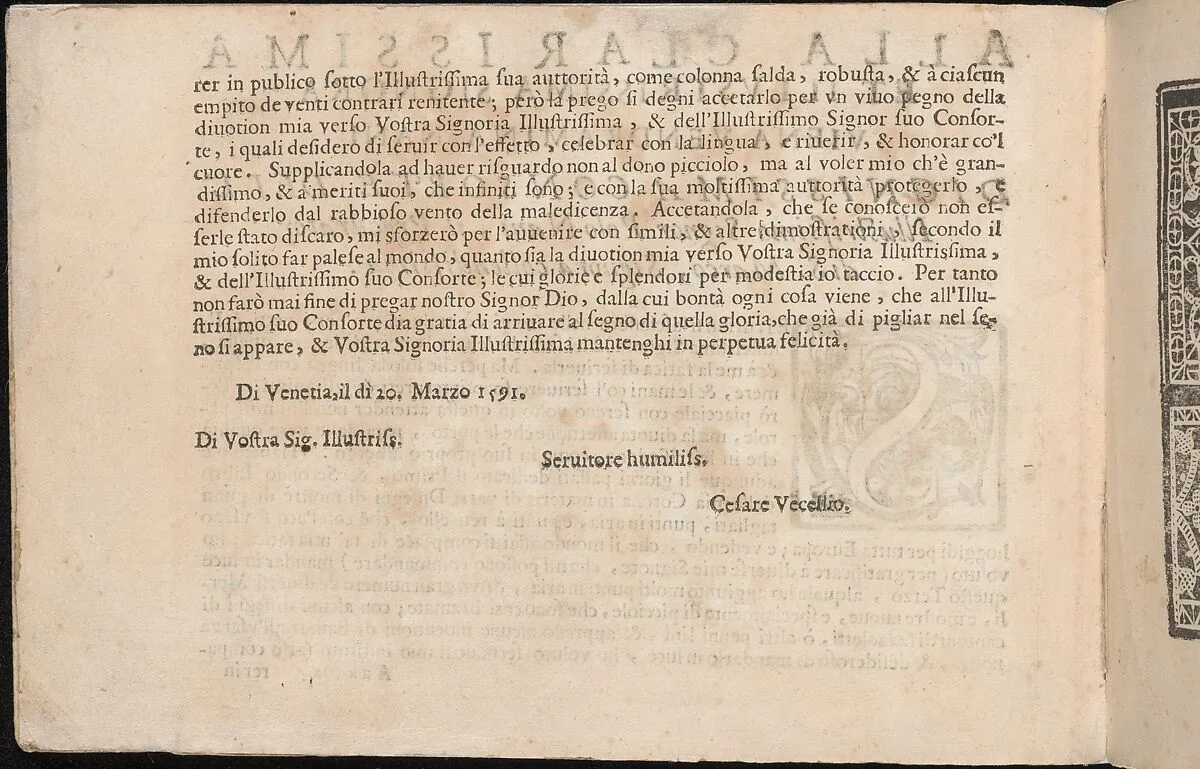 rer in publico ſotto l'Illuſtriſſima ſua auttorità, come colonna ſalda, robuſta, & à ciaſcun
empito de venti contrari renitente; però la prego ſi degni accetarlo per vn viuo pegno della
diuotion mia verſo Voſtra Signoria Illuſtriſſima, & dell'Illuſtriſſimo Signor ſuo Conſor-
te, i quali deſidero di ſeruir con l'effetto, celebrar con la lingua, e riuerir, & honorar co'l
cuore. Supplicandola ad hauer riſguardo non al dono picciolo, ma al voler mio ch'è gran-
diſſimo, & a meriti ſuoi, che infiniti ſono; e con la ſua moltiſſima auttorità protegerlo, e
difenderlo dal rabbioſo vento della maledicenza. Accetandola, che ſe conoſcerò non eſ-
ſerle ſtato diſcaro, mi sforzerò per l'auuenire con ſimili, & altre dimoſtrationi, ſecondo il
mio ſolito far paleſe al mondo, quanto ſia la diuotion mia verſo Voſtra Signoria Illuſtriſſima,
& dell'Illuſtriſſimo ſuo Conſorte; le cui glorie e ſplendori per modeſtia io taccio. Per tanto
non farò mai fine di pregar noſtro Signor Dio, dalla cui bontà ogni coſa viene, che all'Illu-
ſtriſſimo ſuo Conſorte dia gratia di arriuare al ſegno di quella gloria, che già di pigliar nel ſe-
no ſi appare, & Voſtra Signoria Illuſtriſſima mantenghi in perpetua felicità.
Di Venetia, il dì 20. Marzo 1591.
Di Voſtra Sig. Illuſtriſſ.
Seruitore humiliſs.
Ceſare Vecellio.